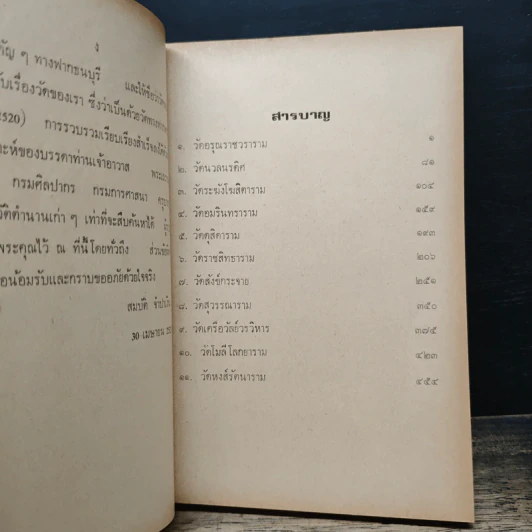 ง
คัญ ๆ ทางฟากธนบุรี และให้ชื่อว่า
ับเรื่องวัดของเรา ซึ่งว่าเป็นด้วย
2520) การรวบรวมเรียบเรียงสำเร็จลงได้
ะห์ของบรรดาท่านเจ้าอาวาส
กรมศิลปากร กรมการศาสนา
วัติตำนานเก่า ๆ เท่าที่จะสืบค้นหาได้
พระคุณไว้ ณ ที่นี้โดยทั่วถึง
อน้อมรับและกราบขออภัยด้วยใจจริง
สมบัติ
30 เมษายน
สารบาญ
๑. วัดอรุณราชวราราม ๑
๒. วัดนวลนรดิศ ๘๑
๓. วัดระฆังโฆสิตาราม ๑๐๔
๔. วัดอมรินทราราม ๑๕๙
๕. วัดดุสิดาราม ๑๙๓
๖. วัดราชสิทธาราม ๒๐๖
๗. วัดสังข์กระจาย ๒๕๑
๘. วัดสุวรรณาราม ๓๕๐
๙. วัดเครือวัลย์วรวิหาร ๓๗๕
๑๐. วัดโมลีโลกยาราม ๔๒๓
๑๑. วัดหงส์รัตนาราม ๔๕๔